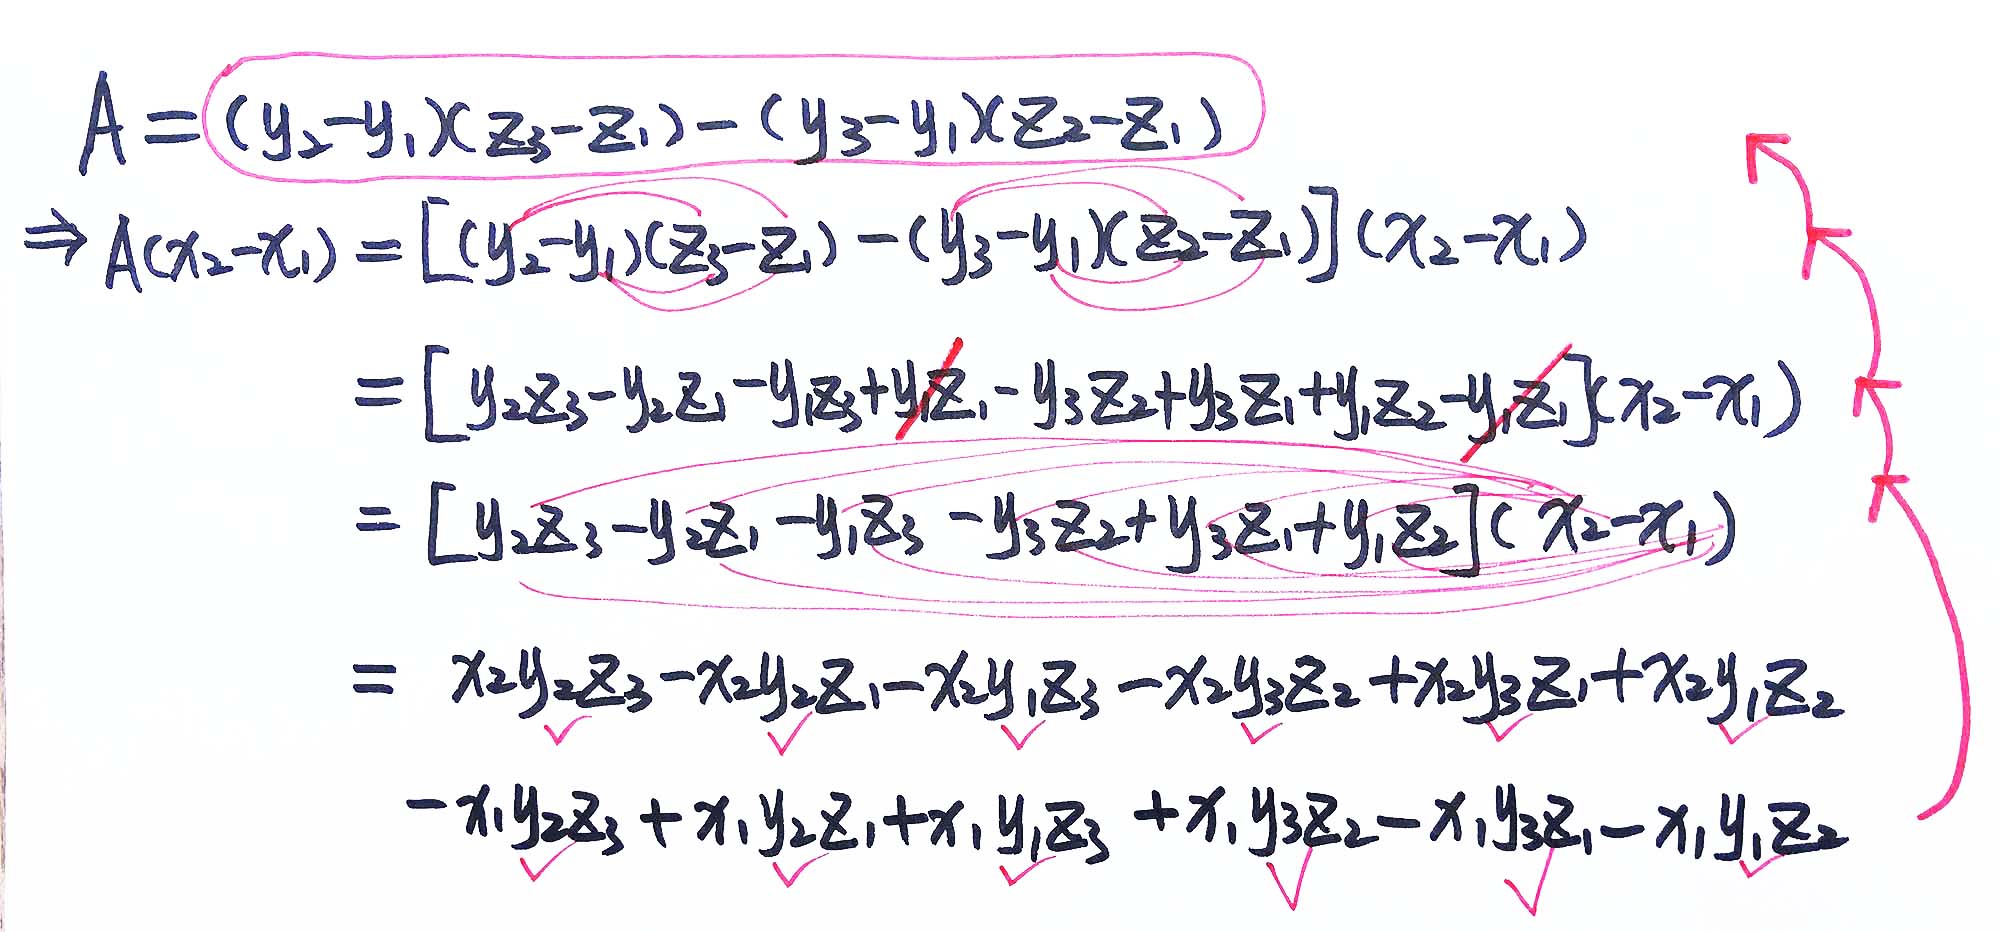 A = (y₂-y₁)(z₃-z₁) - (y₃-y₁)(z₂-z₁)
⇒ A(x₂-x₁) = [(y₂-y₁)(z₃-z₁) - (y₃-y₁)(z₂-z₁)](x₂-x₁)
= [y₂z₃-y₂z₁-y₁z₃+y₁z₁-y₃z₂+y₃z₁+y₁z₂-y₁z₁](x₂-x₁)
= [y₂z₃-y₂z₁-y₁z₃-y₃z₂+y₃z₁+y₁z₂](x₂-x₁)
= x₂y₂z₃-x₂y₂z₁-x₂y₁z₃-x₂y₃z₂+x₂y₃z₁+x₂y₁z₂
-x₁y₂z₃+x₁y₂z₁+x₁y₁z₃+x₁y₃z₂-x₁y₃z₁-x₁y₁z₂